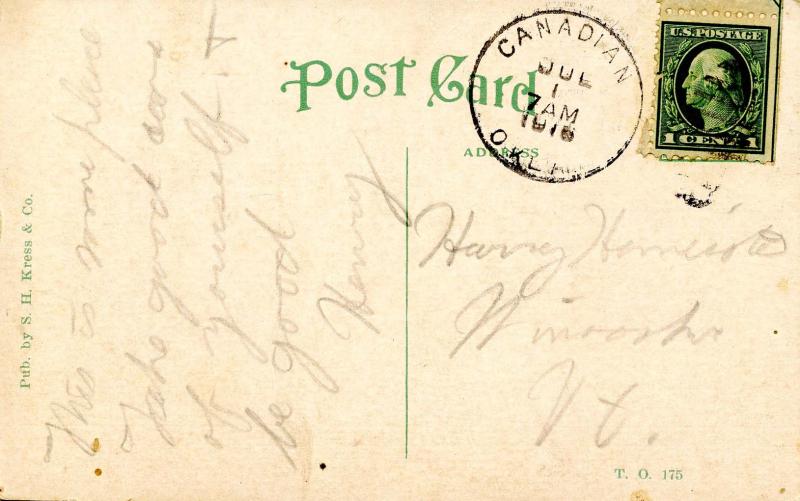 Post Card
ADDRESS
CANADIAN
7 AM
OKLA
U.S. POSTAGE
1 CENT 1
Pub. by S. H. Kress & Co.
This is more place
Take good care
of yourself. &
be good
Henry
Harry
Winooski
Vt.
T. O. 175